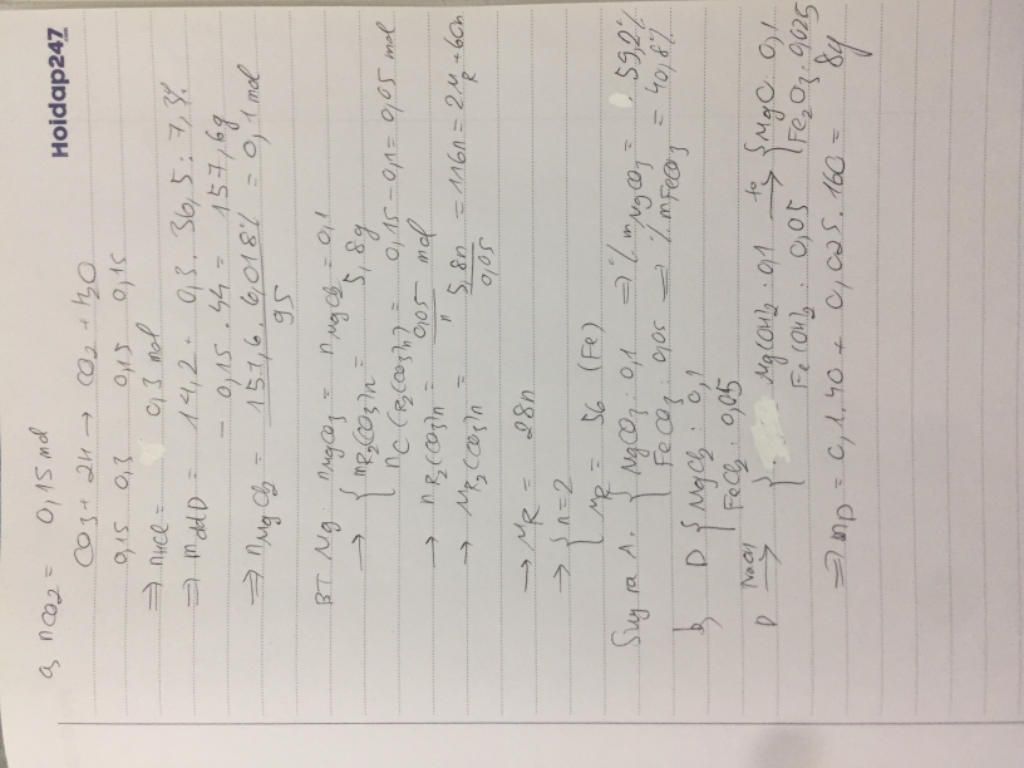 Hoidap247
a, nCO2 = 0,15 mol
CO3 + 2H → CO2 + H2O
0,15 0,3 0,15 0,15
⇒ nHCl = 0,3 mol
⇒ mddD = 14,2 + 0,3 . 36,5 : 7,3%
- 0,15 . 44 = 157,6g
⇒ nMgCl2 = 157,6 . 6,018% / 95 = 0,1 mol
BT Mg: nMgCO3 = nMgCl2 = 0,1
→ { mR2(CO3)n = 5,8g
nC(R2(CO3)n) = 0,15 - 0,1 = 0,05 mol
→ nR2(CO3)n = 0,05 / n mol
→ MR2(CO3)n = 5,8n / 0,05 = 116n = 2MR + 60n
→ MR = 28n
→ { n = 2
MR = 56 (Fe)
Suy ra 1. { MgCO3 : 0,1 ⇒ % mMgCO3 = 59,2%
FeCO3 : 0,05 ⇒ % mFeCO3 = 40,8%
b, D { MgCl2 : 0,1
FeCl2 : 0,05
D NaOH → { Mg(OH)2 : 0,1 to → { MgO 0,1
Fe(OH)2 : 0,05 Fe2O3 : 0,025
⇒ mD = 0,1 . 40 + 0,025 . 160 = 8g